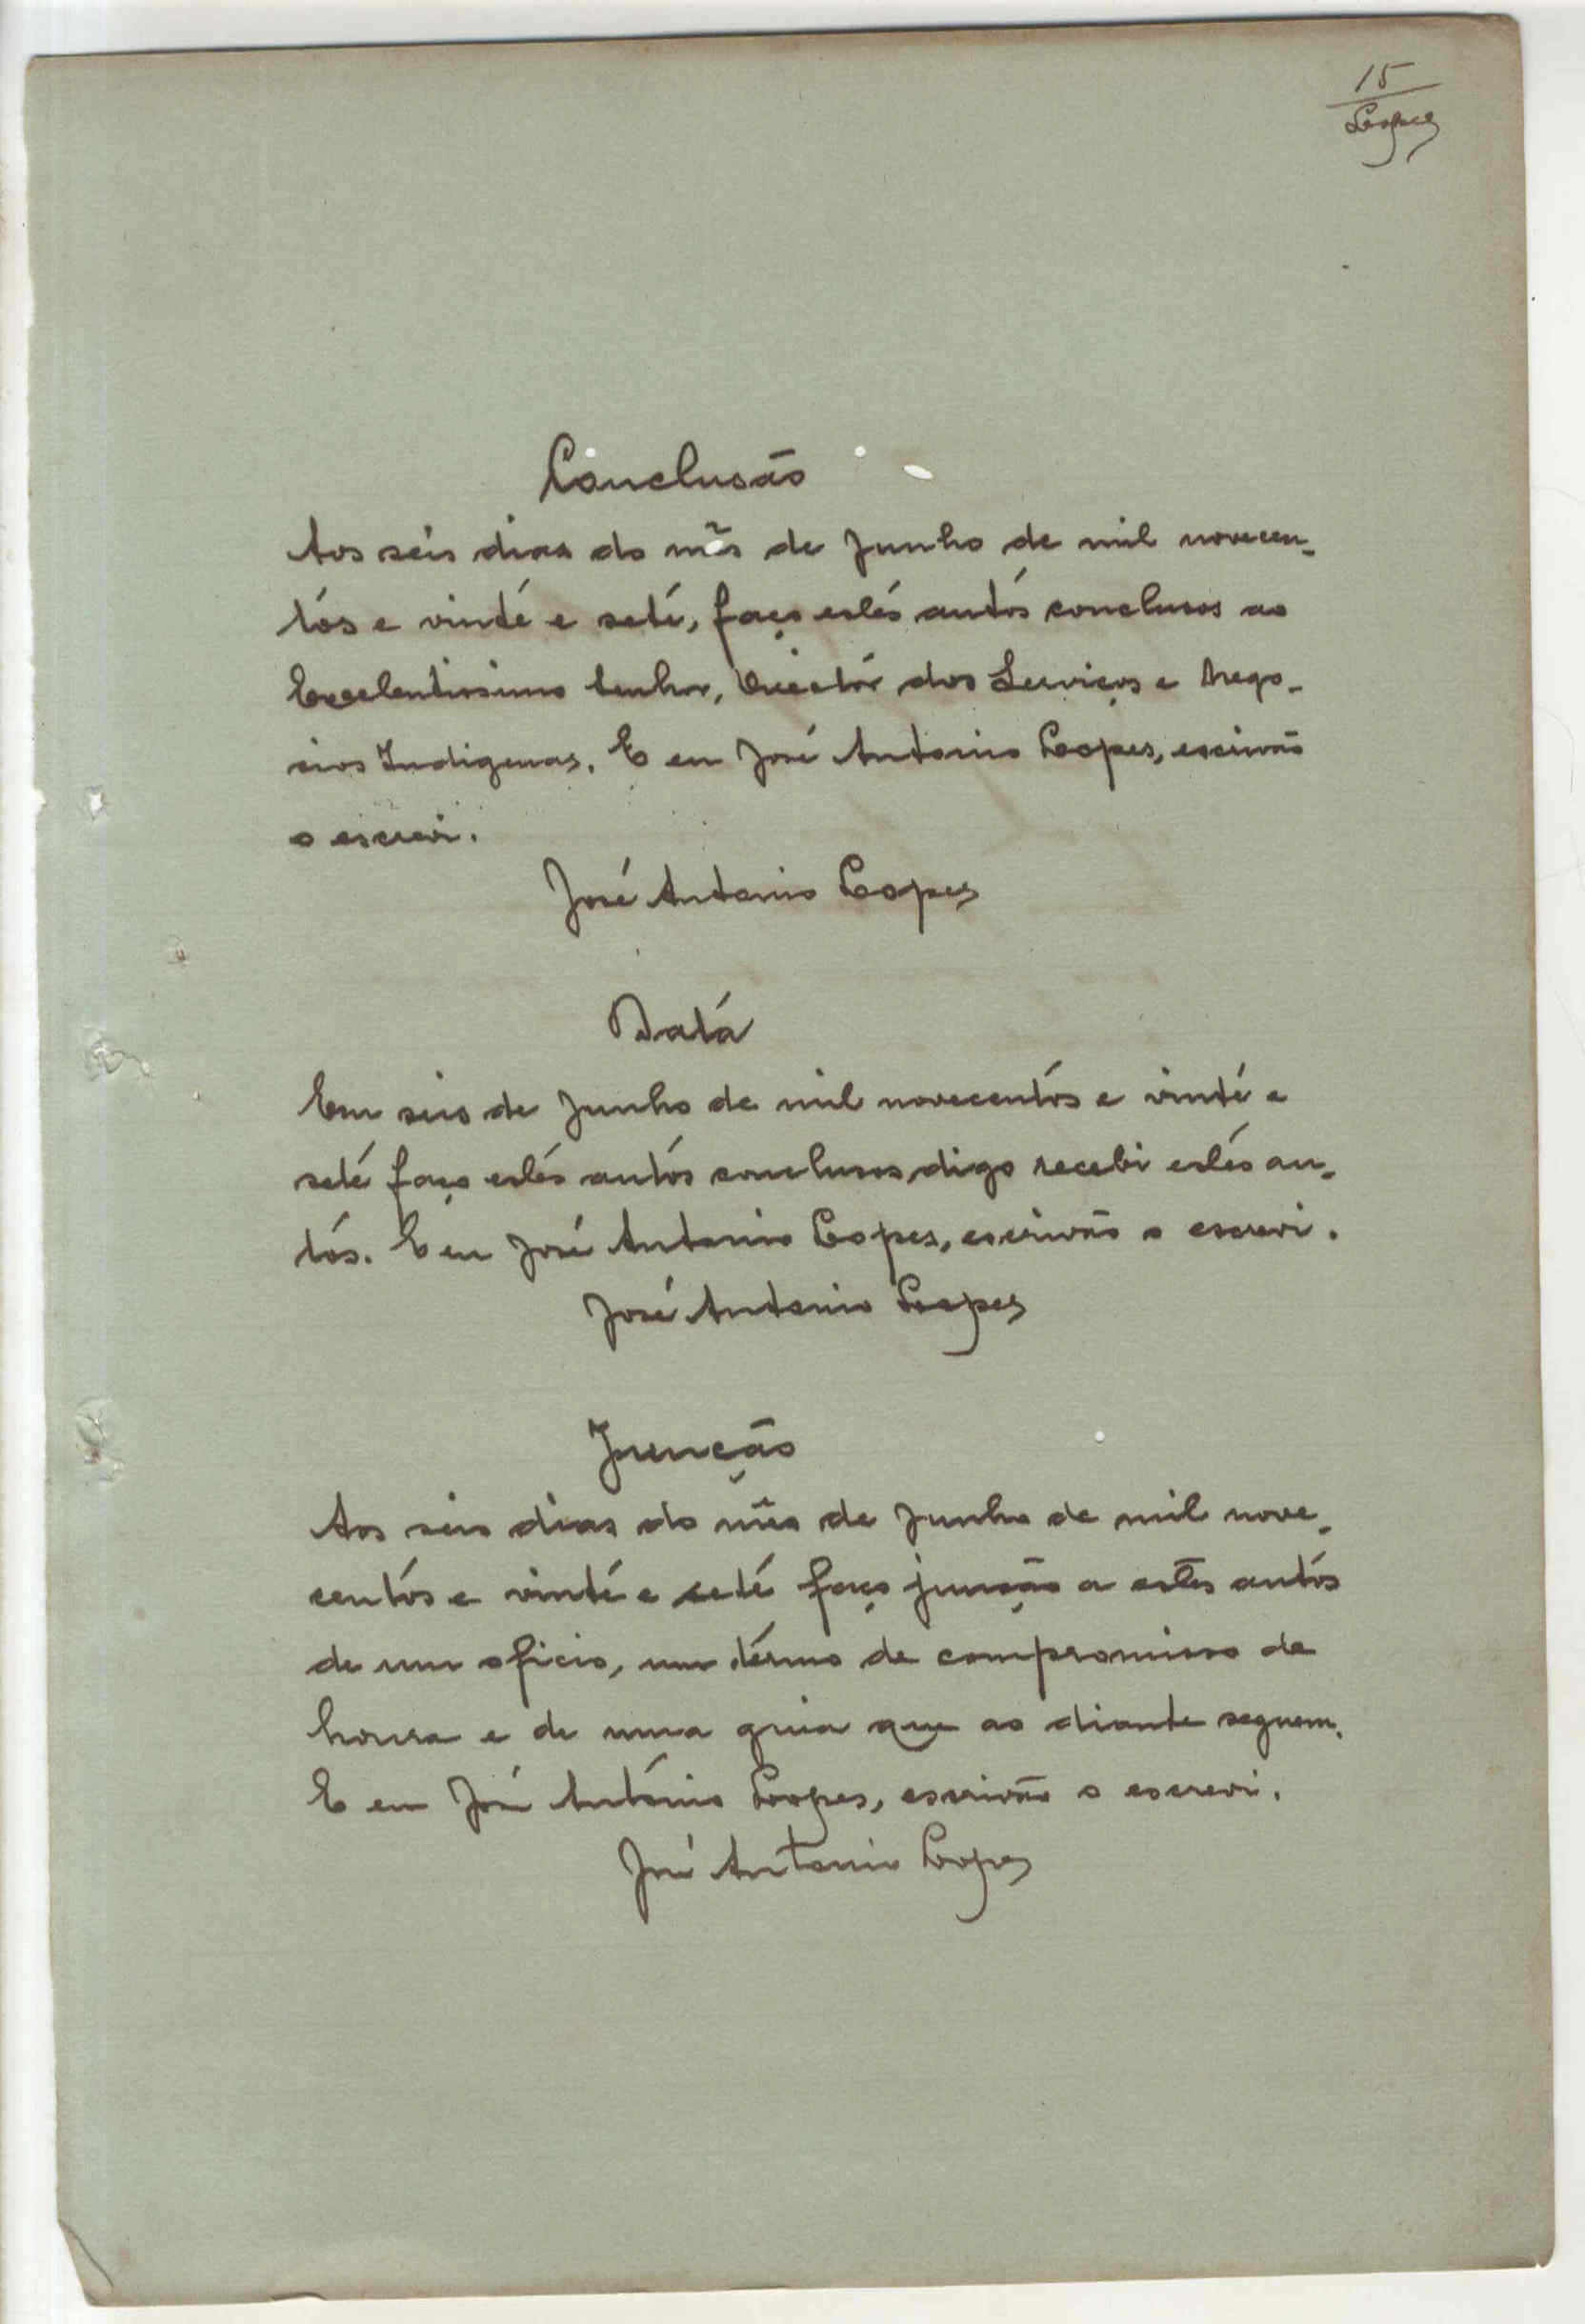 15
Lopes
Conclusão
Aos seis dias do mês de Junho de mil novecen-
tos e vinte e sete, faço estes autos conclusos ao
Excelentissimo Senhor, Director dos Serviços e Nego-
cios Indigenas. E eu José Antonio Lopes, escrivão
o escrevi.
José Antonio Lopes
Data
Em seis de Junho de mil novecentos e vinte e
sete faço estes autos conclusos, digo recebi estes au-
tos. E eu José Antonio Lopes, escrivão o escrevi.
José Antonio Lopes
Junção
Aos seis dias do mês de Junho de mil nove-
centos e vinte e sete faço junção a estes autos
de um oficio, um têrmo de compromisso de
honra e de uma guia que ao diante seguem.
E eu José António Lopes, escrivão o escrevi.
José Antonio Lopes